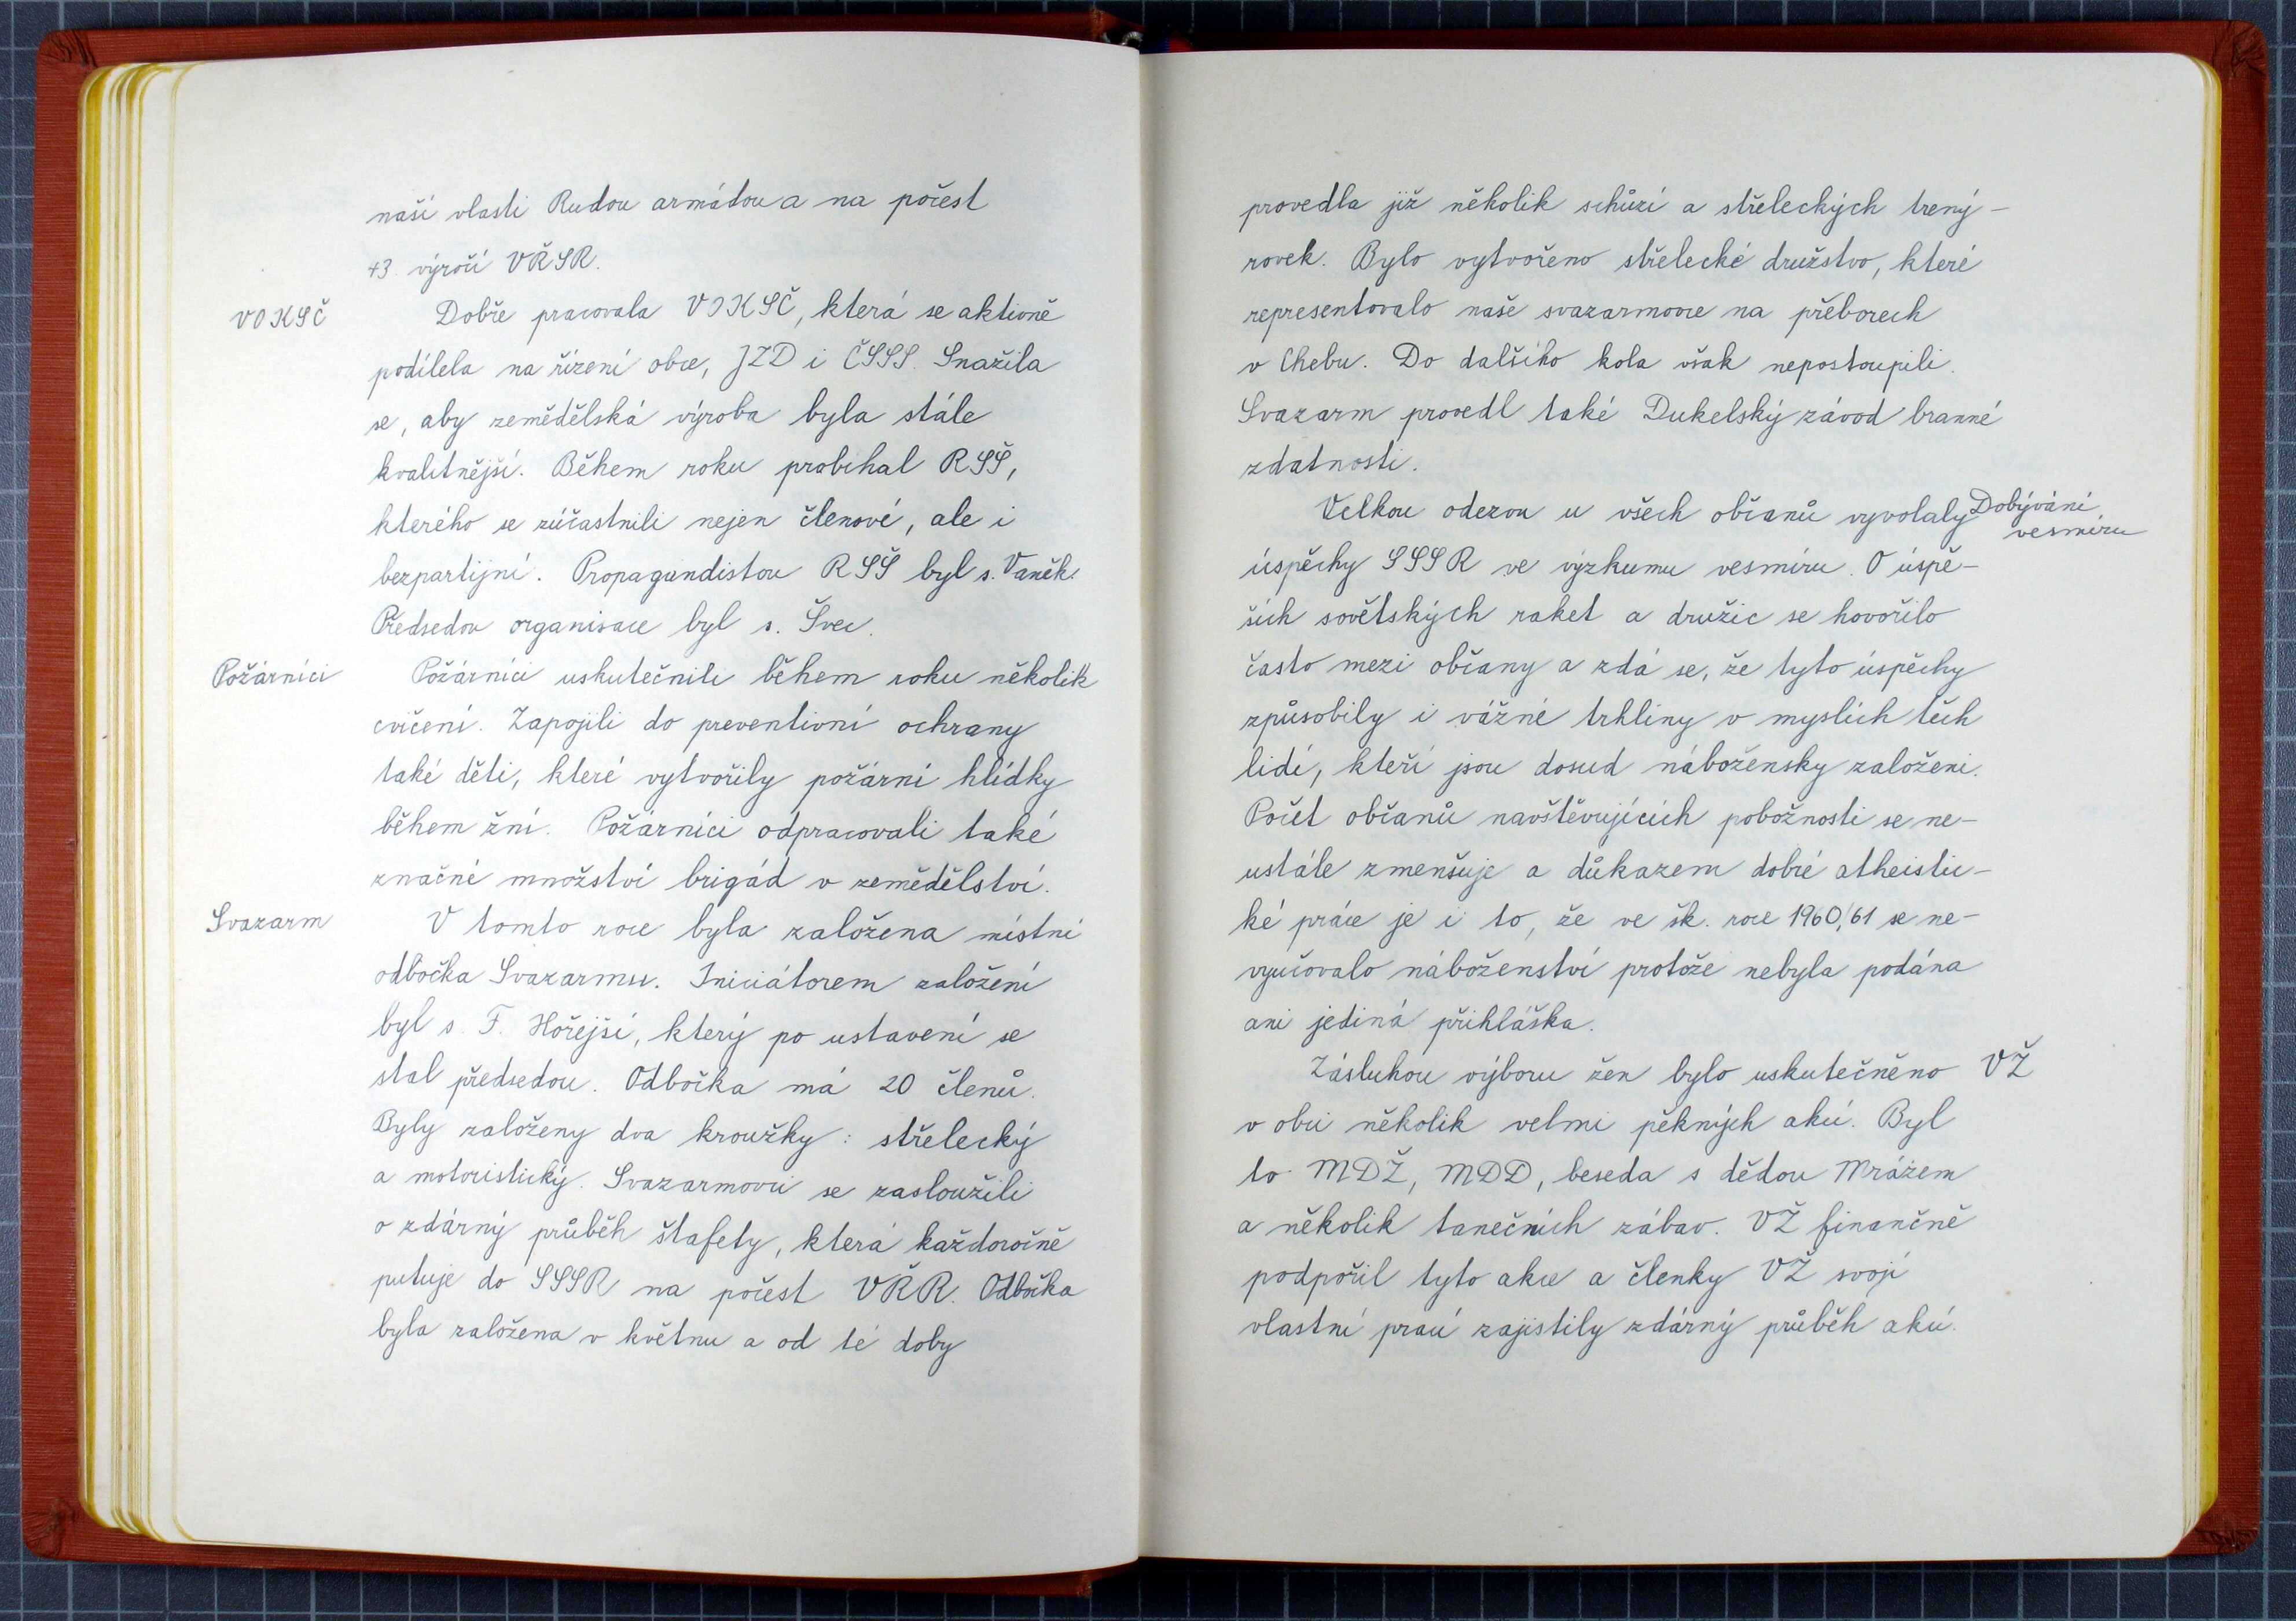 naší vlasti Rudou armádou a na počest
43. výročí VŘSR.
VOKSČ
Dobře pracovala VOKSČ, která se aktivně
podílela na řízení obce, JZD i ČSSS. Snažila
se, aby zemědělská výroba byla stále
kvalitnější. Během roku probíhal RSŠ,
kterého se zúčastnili nejen členové, ale i
bezpartijní. Propagandistou RSŠ byl s. Vaněk.
Předsedou organisace byl s. Švec.
Požárníci
Požárníci uskutečnili během roku několik
cvičení. Zapojili do preventivní ochrany
také děti, které vytvořily požární hlídky
během žní. Požárníci odpracovali také
značné množství brigád v zemědělství.
Svazarm
V tomto roce byla založena místní
odbočka Svazarmu. Iniciátorem založení
byl s. F. Hořejší, který po ustavení se
stal předsedou. Odbočka má 20 členů.
Byly založeny dva kroužky: střelecký
a motoristický. Svazarmovci se zasloužili
o zdárný průběh štafety, která každoročně
putuje do SSSR na počest VŘR. Odbočka
byla založena v květnu a od té doby
provedla již několik schůzí a střeleckých trený-
rovek. Bylo vytvořeno střelecké družstvo, které
representovalo naše svazarmovce na přeborech
v Chebu. Do dalšího kola však nepostoupili.
Svazarm provedl také Dukelský závod branné
zdatnosti.
Velkou odezvu u všech občanů vyvolaly
Dobývání
vesmíru
úspěchy SSSR ve výzkumu vesmíru. O úspě-
ších sovětských raket a družic se hovořilo
často mezi občany a zdá se, že tyto úspěchy
způsobily i vážné trhliny v myslích těch
lidí, kteří jsou dosud nábožensky založeni.
Počet občanů navštěvujících pobožnosti se ne-
ustále zmenšuje a důkazem dobré atheistic-
ké práce je i to, že ve šk. roce 1960/61 se ne-
vyučovalo náboženství protože nebyla podána
ani jediná přihláška.
Zásluhou výboru žen bylo uskutečněno
VŽ
v obci několik velmi pěkných akcí. Byl
to MDŽ, MDD, beseda s dědou Mrázem
a několik tanečních zábav. VŽ finančně
podpořil tyto akce a členky VŽ svojí
vlastní prací zajistily zdárný průběh akcí.